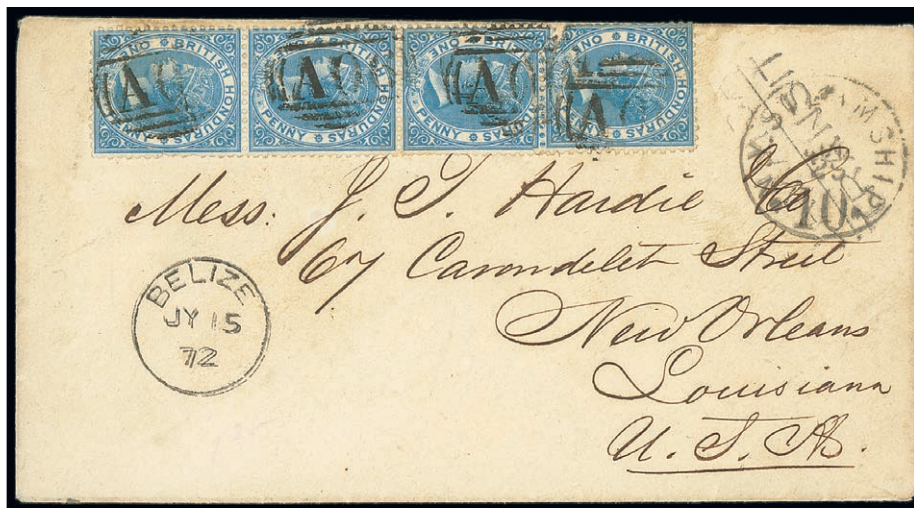 BRITISH HONDURAS ONE PENNY
BRITISH HONDURAS ONE PENNY
BRITISH HONDURAS ONE PENNY
BRITISH HONDURAS ONE PENNY
A0
A0
A0
A0
STEAMSHIP
10
Mess: J. T. Hardie & Co
67 Carondelet Street
New Orleans
Louisiana
U. S. A.
BELIZE
JY 15
72